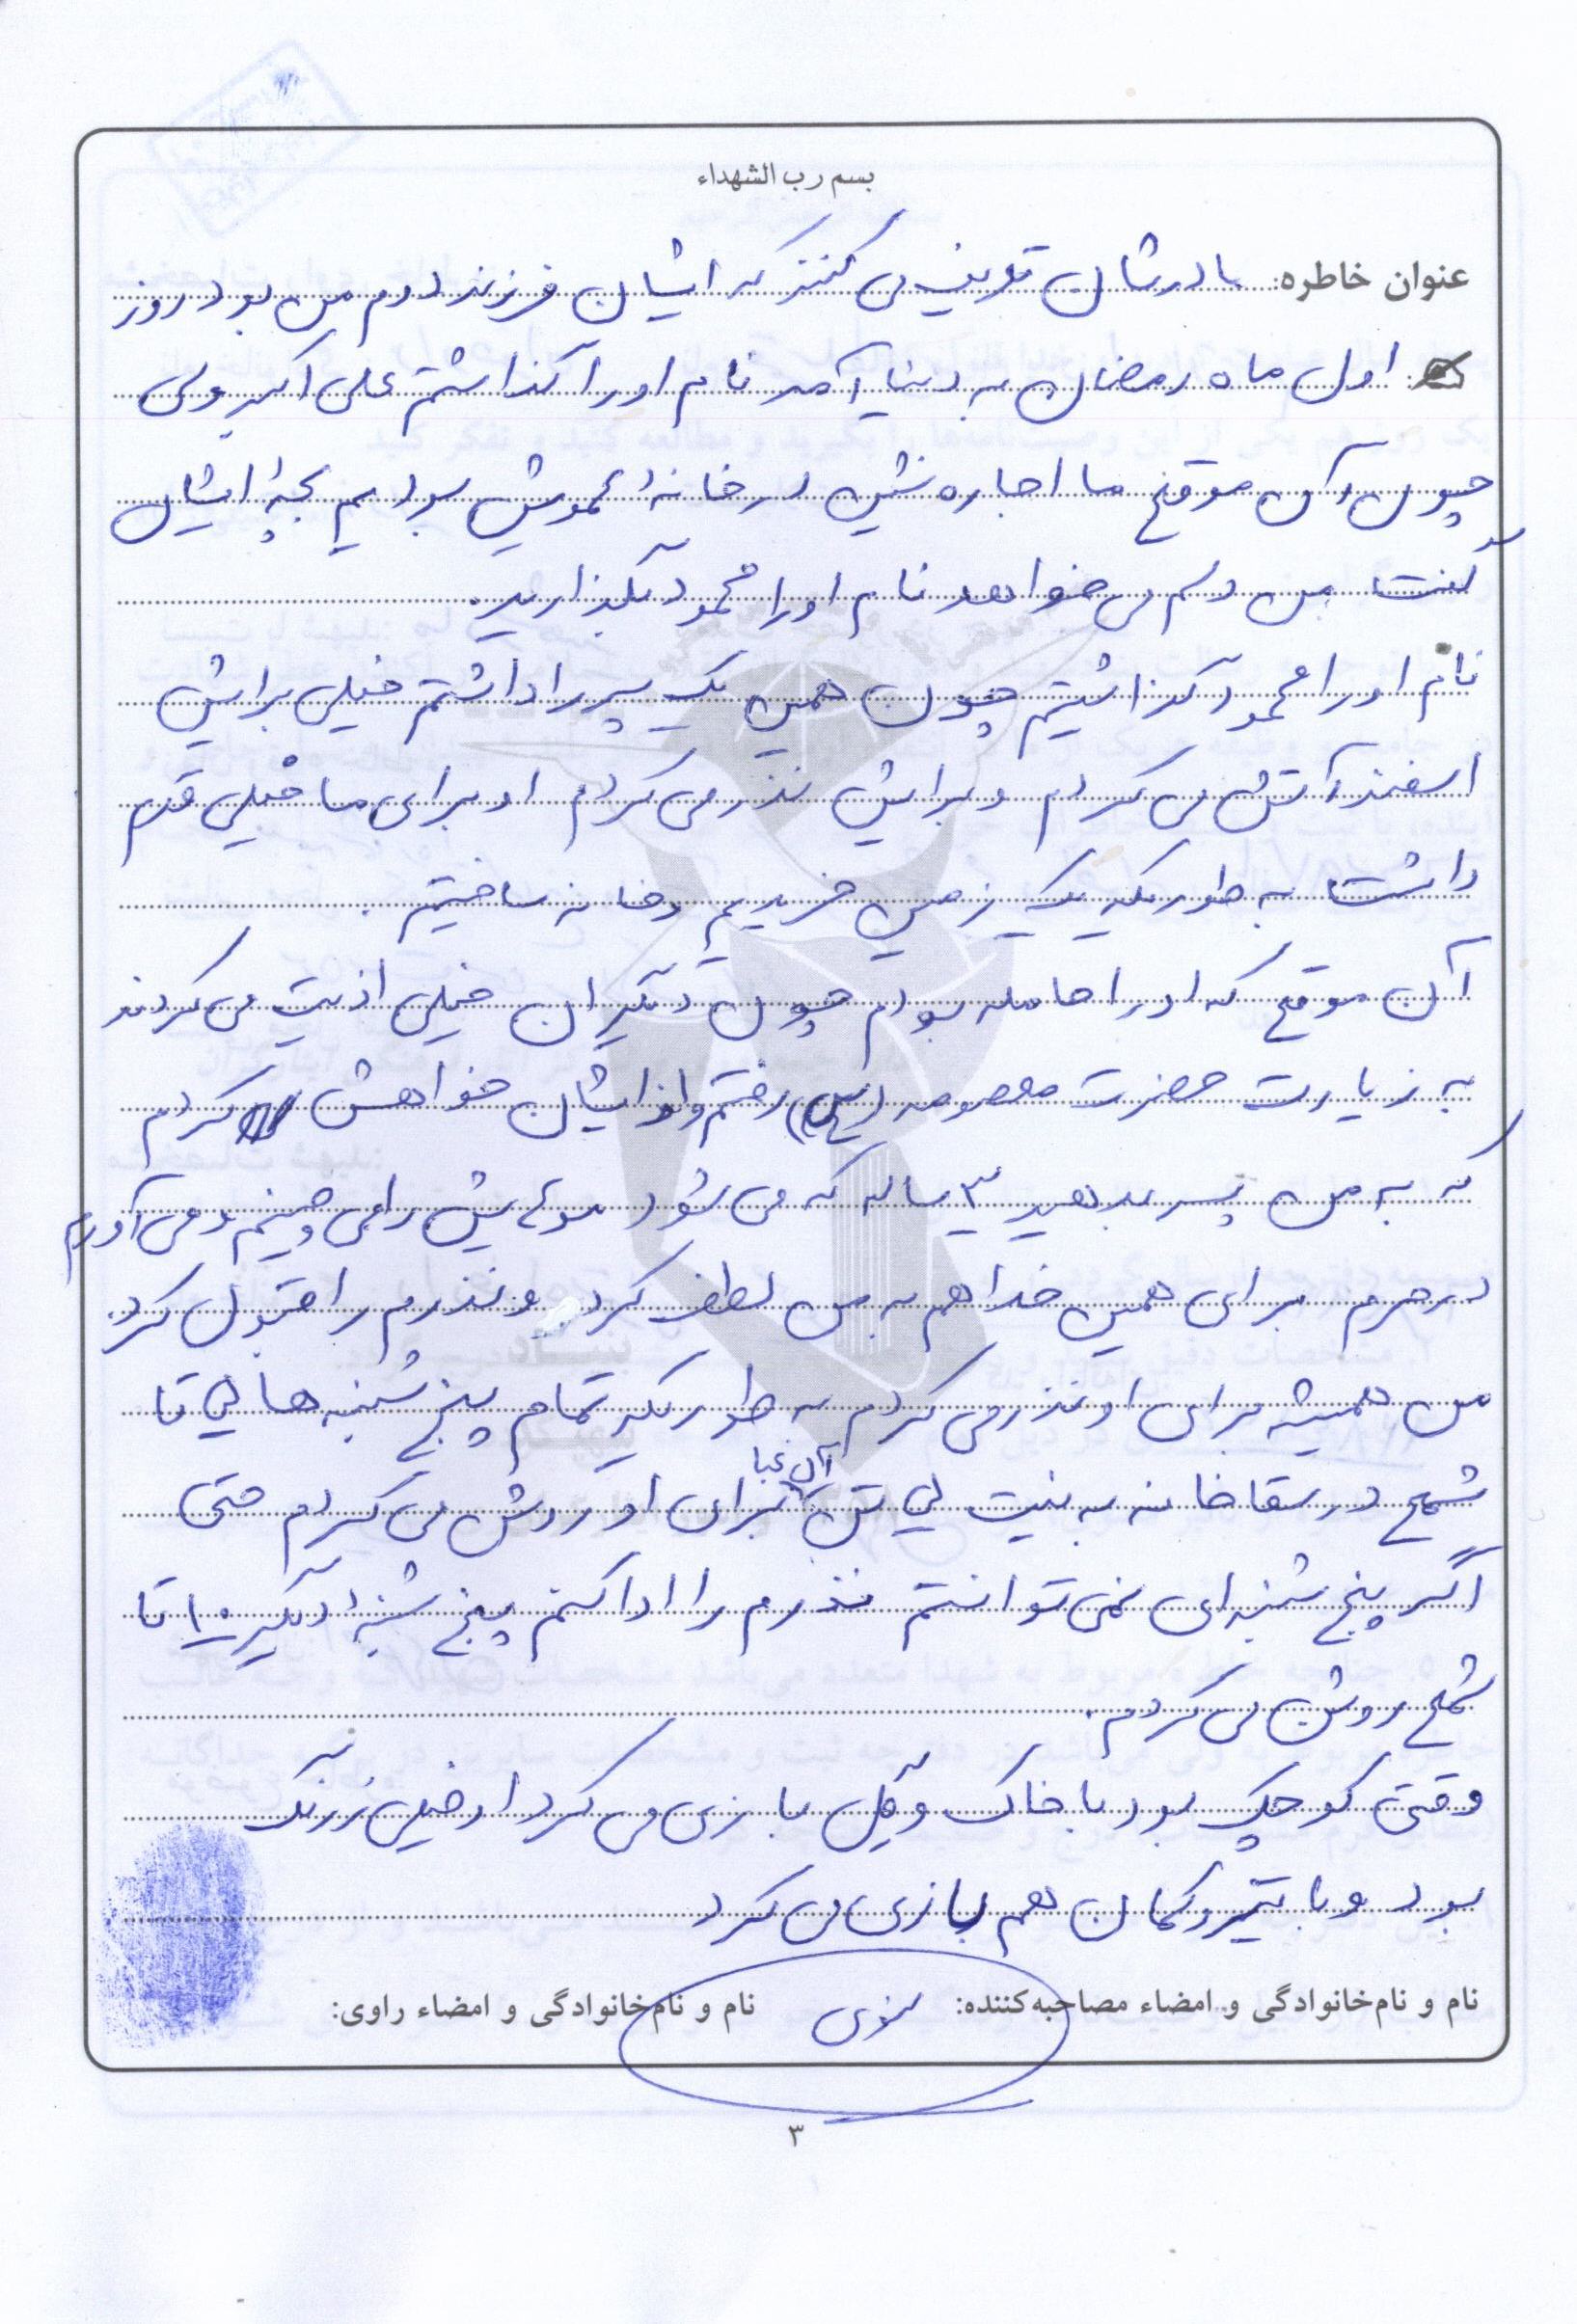 بسم رب الشهداء
عنوان خاطره: مادرشان تعریف می کنند که ایشان فرزند دوم من بود روز
اول ماه رمضان به دنیا آمد نام او را گذاشتم علی اکبر ولی
چون آن موقع ما اجاره نشین در خانهٔ عمویش بودیم بچهٔ ایشان
گفت من دلم می خواهد نام او را محمود بگذارید.
نام او را محمود گذاشتیم چون همین یک پسر را داشتم خیلی برایش
اسفند آتش می کردم و برایش نذر می کردم او برای ما خیلی قدم
داشت به طوریکه یک زمین خریدیم و خانه ساختیم.
آن موقع که او را حامله بودم چون دیگران خیلی اذیت می کردند
به زیارت حضرت معصومه (س) رفتم و از ایشان خواهش کردم
که به من پسر بدهید ۳ ساله که می شود موهایش را می چینم و می آورم
در حرم برای همین خدا هم به من لطف کرد و نذرم را قبول کرد.
من همیشه برای او نذر می کردم به طوریکه تمام پنج شنبه ها ۵ تا
شمع در سقاخانه به نیت ۵ تن آل عبا برای او روشن می کردم حتی
اگر پنج شنبه ای نمی توانستم نذرم را ادا کنم پنج شنبهٔ دیگر ۱۰ تا
شمع روشن می کردم.
وقتی کوچک بود با خاک و گل بازی می کرد او خیلی زرنگ
بود و با تیروکمان هم بازی می کرد
نام و نام‌خانوادگی و امضاء مصاحبه‌کننده: نام و نام‌خانوادگی و امضاء راوی:
۳